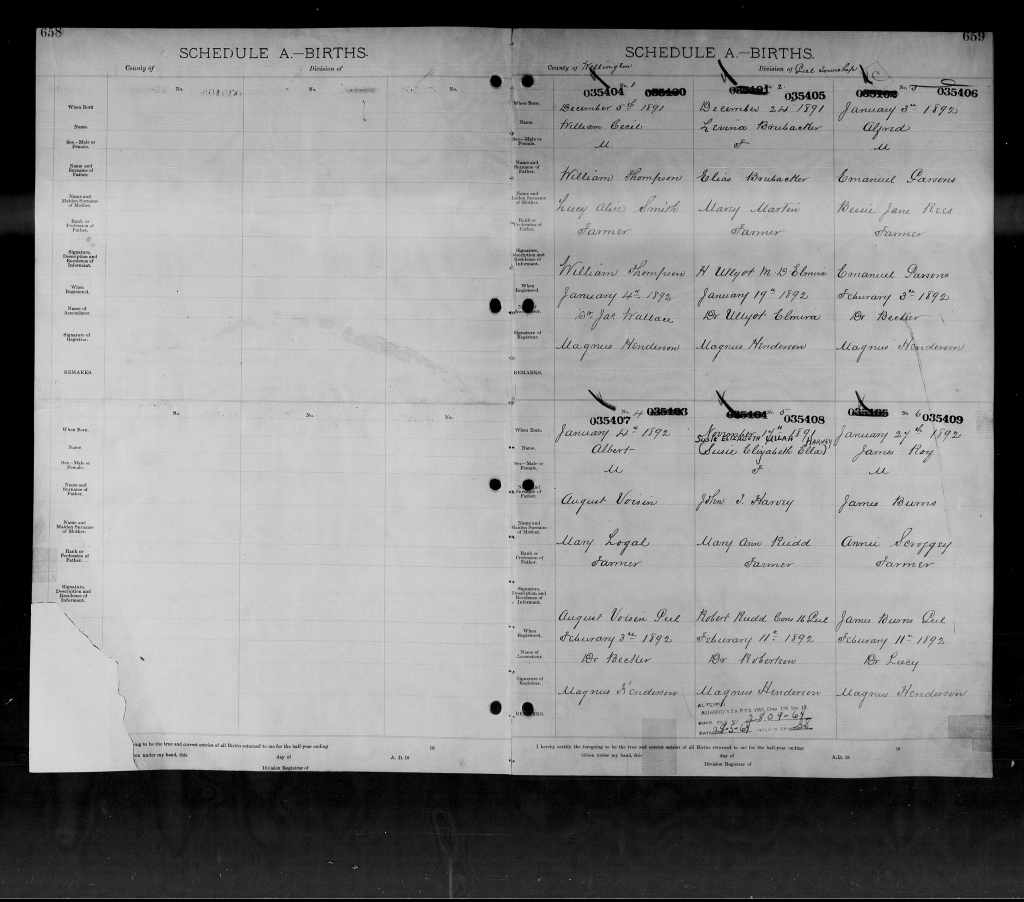 658
SCHEDULE A.—BIRTHS.
County of
Division of
No.
No.
No.
When Born
Name.
Sex—Male or Female.
Name and Surname of Father.
Name and Maiden Surname of Mother.
Rank or Profession of Father.
Signature, Description and Residence of Informant.
When Registered.
Name of Accoucheur.
Signature of Registrar.
REMARKS.
No.
No.
No.
When Born.
Name.
Sex—Male or Female.
Name and Surname of Father.
Name and Maiden Surname of Mother.
Rank or Profession of Father.
Signature, Description and Residence of Informant.
going to be the true and correct entries of all Births returned to me for the half-year ending
18
under my hand, this
day of
A. D. 18
Division Registrar of
659
SCHEDULE A.—BIRTHS.
County of Wellington
Division of Peel Township
No. 1
No. 2
No. 3
035404
035405
035406
When Born. December 5th 1891 December 24 1891 January 3rd 1892
Name William Cecil Levina Brubacher Alfred
Sex—Male or Female. M F M
Name and Surname of Father. William Thompson Elias Brubacher Emanuel Parsons
Name and Maiden Surname of Mother. Lucy Alice Smith Mary Martin Bessie Jane Rees
Rank or Profession of Father. Farmer Farmer Farmer
Signature, Description and Residence of Informant. William Thompson H Ullyot M D Elmira Emanuel Parsons
When Registered. January 4th 1892 January 19th 1892 Feburary 3rd 1892
Dr Jas Wallace Dr Ullyot Elmira Dr Becker
Signature of Registrar Magnus Henderson Magnus Henderson Magnus Henderson
REMARKS.
No. 4
No. 5
No. 6
035407
035408
035409
When Born. January 4th 1892 November 17th 1891 January 27th 1892
SUSIE ELIZABETH HARVEY
Name. Albert (Susie Elizabeth Ella) James Roy
Sex—Male or Female. M F M
August Voisin John T. Harvey James Burns
Name and Maiden Surname of Mother. Mary Logal Mary Ann Rudd Annie
Rank or Profession of Father. Farmer Farmer Farmer
Signature, Description and Residence of Informant.
August Voisin Peel Robert Rudd Cons 16 Peel James Burns Peel
When Registered. Feburary 3rd 1892 Feburary 11th 1892 Feburary 11th 1892
Name of Accoucheur. Dr Becker Dr Robertson Dr Lucy
Signature of Registrar. Magnus Henderson Magnus Henderson Magnus Henderson
REMARKS.
I hereby certify the foregoing to be the true and correct entries of all Births returned to me for the half-year ending
18
Given under my hand, this
day of
A.D. 18
Division Registrar of